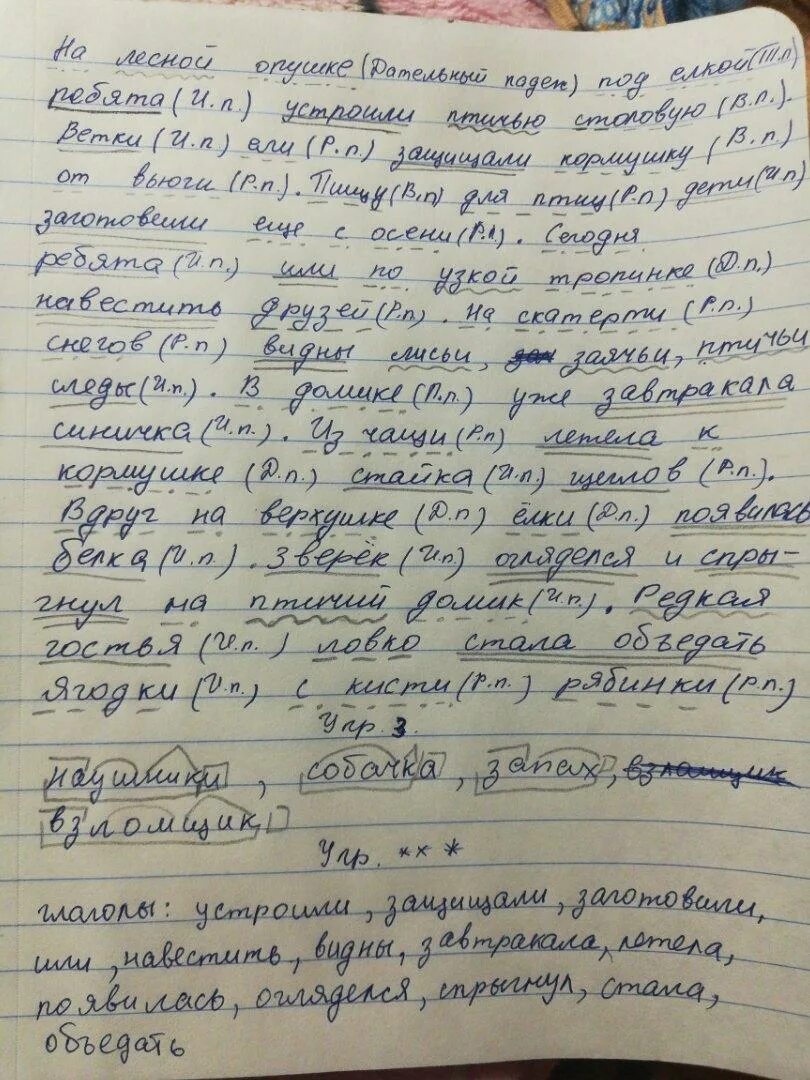 На лесной опушке (Дательный падеж) под елкой (Т.п)
ребята (И.п.) устроили птичью столовую (В.п.).
Ветки (И.п) ели (Р.п.) защищали кормушку (В.п)
от вьюги (Р.п.). Пищу (В.п) для птиц (Р.п) дети (И.п)
заготовили еще с осени (Р.п). Сегодня
ребята (И.п.) шли по узкой тропинке (Д.п.)
навестить друзей (Р.п). На скатерти (Р.п.)
снегов (Р.п) видны лисьи, заячьи, птичьи
следы (И.п.). В домике (П.п.) уже завтракала
синичка (И.п.). Из чащи (Р.п) летела к
кормушке (Д.п.) стайка (И.п.) щеглов (Р.п.).
Вдруг на верхушке (Д.п) ёлки (Д.п.) появилась
белка (И.п.). Зверёк (И.п) огляделся и спры-
гнул на птичий домик (И.п.). Редкая
гостья (И.п.) ловко стала объедать
ягодки (И.п.) с кисти (Р.п.) рябинки (Р.п.)
Упр. 3.
наушники, собачка, запах, взломщик
взломщик
Упр. ***
глаголы: устроили, защищали, заготовили,
шли, навестить, видны, завтракала, летела,
появилась, огляделся, спрыгнул, стала,
объедать